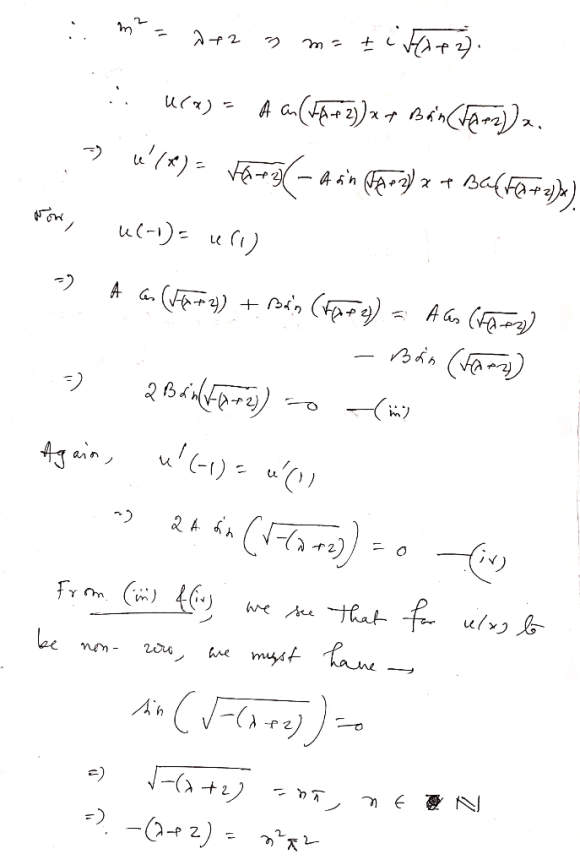 ∴ m² = λ+2 ⇒ m = ± i √-(λ+2).
∴ u(x) = A cos(√-(λ+2))x + B sin(√-(λ+2))x.
⇒ u'(x) = √-(λ+2) (-A sin(√-(λ+2))x + B cos(√-(λ+2))x).
Now, u(-1) = u(1)
⇒ A cos(√-(λ+2)) + B sin(√-(λ+2)) = A cos(√-(λ+2))
- B sin(√-(λ+2))
⇒ 2B sin(√-(λ+2)) = 0 —(iii)
Again, u'(-1) = u'(1)
⇒ 2A sin(√-(λ+2)) = 0 —(iv)
From (iii) & (iv) we see that for u(x) to
be non-zero, we must have →
sin(√-(λ+2)) = 0
⇒ √-(λ+2) = nπ, n ∈ ℕ
⇒ -(λ+2) = n²π²